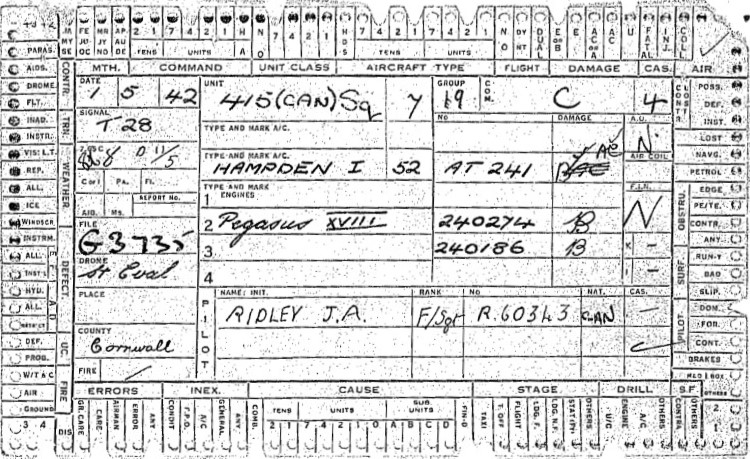 7 4 2 1 7 4 2 1 H N 7 4 2 1 HDS 7 4 2 1 7 4 2 1 NO DY NT DUAL E OR B E AC OR A AC U FATAL INJ. COLL
TENS UNITS A O TENS UNITS
PARAS. MTH. COMMAND UNIT CLASS AIRCRAFT TYPE FLIGHT DAMAGE CAS. AIR
AIDS. CONTR. DATE UNIT GROUP COM. CONTR LOST POSS.
DROME 1 5 42 415 (CAN) Sq 7 19 C 4 DEF.
FLT. SIGNAL No DAMAGE A.U. INST.
INAD. TRN. T 28 TYPE AND MARK A/C. N LOST
INSTR. AIR COLL
VIS: L.T. WEATHER D 11/5 TYPE AND MARK A/C. AC NAVG.
REP. HAMPDEN I 52 AT 241 PETROL
ALL. Cat Pa. Fl. TYPE AND MARK ENGINES F.I.N. EDGE
ICE REPORT No. 1 OBSTRU. PE/TE.
WINDSCR. AID. Ms. 2 Pegasus XVIII 240274 B N CONTR.
INSTRM. FILE G3735 3 240186 B X - ANY.
ALL. DEFECT. DROME St Eval 4 SURF. RUN-Y
INST'S I - BAD
HYD. PLACE PILOT NAME: INIT. RANK No NAT. CAS. SLIP.
ALL. RIDLEY J.A. F/Sgt R.60343 CAN - PILOT DOM.
COUNTY FOR.
DEF. UC. Cornwall CONT.
PROG. BRAKES
W/T & C FIRE MED BOX
AIR FIRE ERRORS INEX. CAUSE STAGE DRILL S.F. OTHERS
GROUND GR. CARE CARE AIRMAN ERROR ANY CONDIT F.P.O. A/C GENERAL ANY COMB. TENS UNITS SUB. UNITS FIND TAXI T. OFF FLIGHT LDG. F. LDG. N.F. STAT(PK) OTHERS U/C ENGINE A/C OTHERS CONTRA. OTHERS 2
3 4 DIS 2 1 7 4 2 1 0 A B C D 1